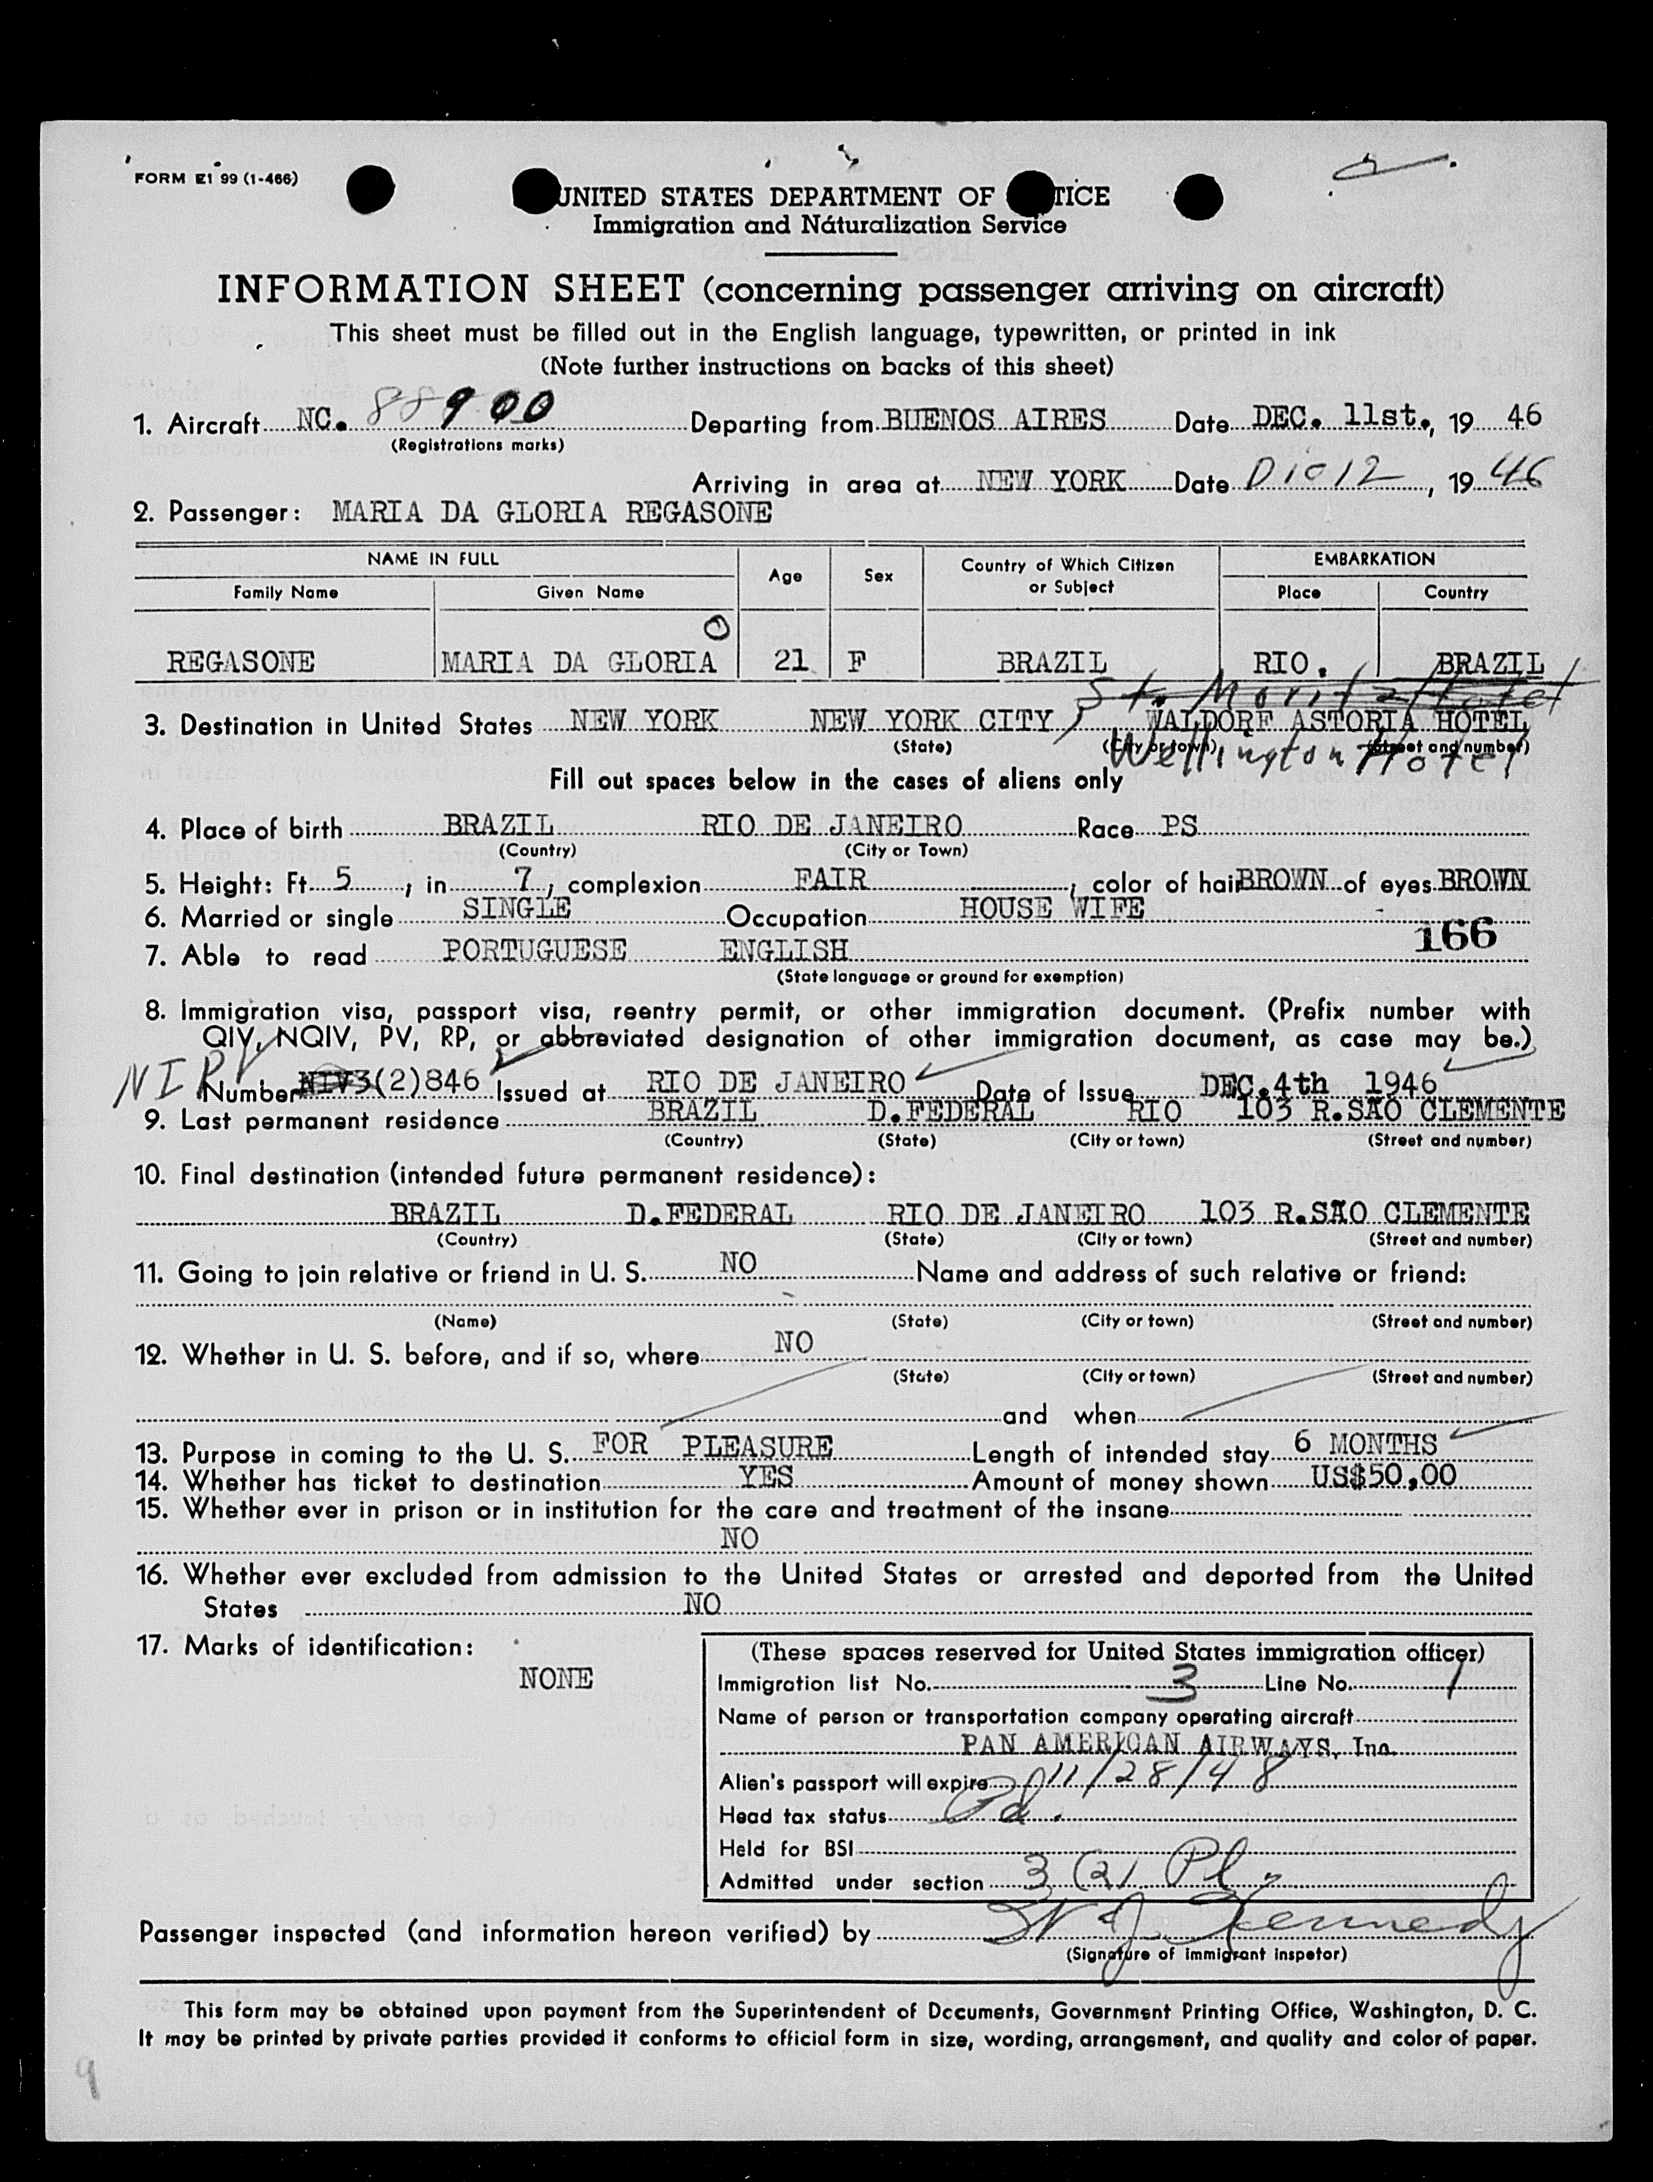 FORM E1 99 (1-466)
UNITED STATES DEPARTMENT OF TICE
Immigration and Naturalization Service
INFORMATION SHEET (concerning passenger arriving on aircraft)
This sheet must be filled out in the English language, typewritten, or printed in ink
(Note further instructions on backs of this sheet)
1. Aircraft NC. 88900 Departing from BUENOS AIRES Date DEC. 11st., 19 46
(Registrations marks)
Arriving in area at NEW YORK Date 12, 19 46
2. Passenger: MARIA DA GLORIA REGASONE
NAME IN FULL Age Sex Country of Which Citizen or Subject EMBARKATION
Family Name Given Name Place Country
REGASONE MARIA DA GLORIA 21 F BRAZIL RIO. BRAZIL
St. Moritz Hotel
3. Destination in United States NEW YORK NEW YORK CITY, WALDORF ASTORIA HOTEL
(State) (City or town) (Street and number)
Wellington Hotel
Fill out spaces below in the cases of aliens only
4. Place of birth BRAZIL RIO DE JANEIRO Race PS
(Country) (City or Town)
5. Height: Ft. 5, in. 7, complexion FAIR, color of hair BROWN of eyes BROWN
6. Married or single SINGLE Occupation HOUSE WIFE
166
7. Able to read PORTUGUESE ENGLISH
(State language or ground for exemption)
8. Immigration visa, passport visa, reentry permit, or other immigration document. (Prefix number with
QIV, NQIV, PV, RP, or abbreviated designation of other immigration document, as case may be.)
Number NIV3(2)846 Issued at RIO DE JANEIRO Date of Issue DEC.4th 1946
9. Last permanent residence BRAZIL D.FEDERAL RIO 103 R.SÃO CLEMENTE
(Country) (State) (City or town) (Street and number)
10. Final destination (intended future permanent residence):
BRAZIL D.FEDERAL RIO DE JANEIRO 103 R.SÃO CLEMENTE
(Country) (State) (City or town) (Street and number)
11. Going to join relative or friend in U. S. NO Name and address of such relative or friend:
(Name) (State) (City or town) (Street and number)
12. Whether in U. S. before, and if so, where NO
(State) (City or town) (Street and number)
and when
13. Purpose in coming to the U. S. FOR PLEASURE Length of intended stay 6 MONTHS
14. Whether has ticket to destination YES Amount of money shown US$50,00
15. Whether ever in prison or in institution for the care and treatment of the insane
NO
16. Whether ever excluded from admission to the United States or arrested and deported from the United
States NO
17. Marks of identification:
NONE
(These spaces reserved for United States immigration officer)
Immigration list No. 3 Line No. 1
Name of person or transportation company operating aircraft
PAN AMERICAN AIRWAYS, Inc.
Alien's passport will expire 11/28/48
Head tax status Pd.
Held for BSI
Admitted under section 3 (2) Pl
Passenger inspected (and information hereon verified) by W J Kennedy
(Signature of immigrant inspetor)
This form may be obtained upon payment from the Superintendent of Documents, Government Printing Office, Washington, D. C.
It may be printed by private parties provided it conforms to official form in size, wording, arrangement, and quality and color of paper.
9